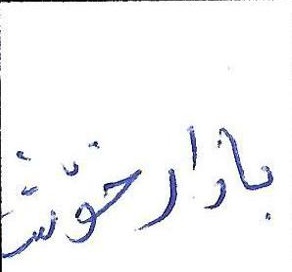 بازار خوش